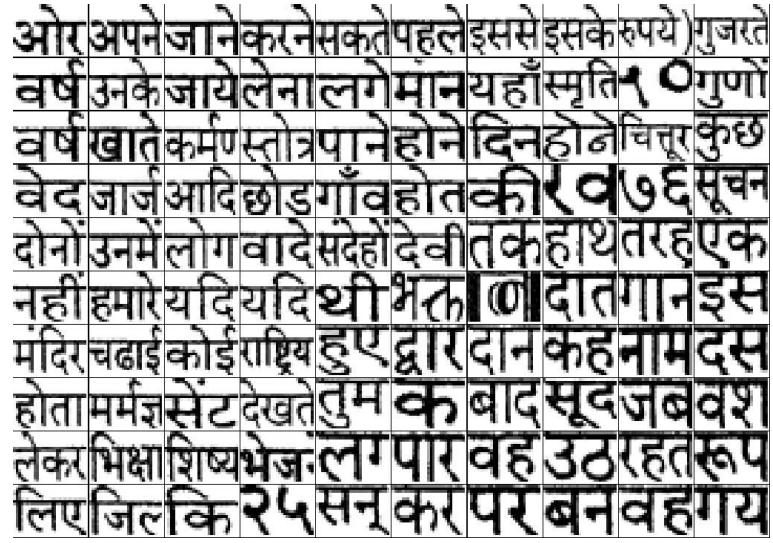 ओर अपने जाने करने सकते पहले इससे इसके रुपये) गुजरते
वर्ष उनके जाये लेना लगे मान यहाँ स्मृति १० गुणों
वर्ष खाते कर्मण स्तोत्र पाने होने दिन होने चित्तूर कुछ
वेद जार्ज आदि छोड गाँव होत की रव ७६ सूचन
दोनों उनमें लोग वादे संदेहों देवी तक हाथ तरह एक
नहीं हमारे यदि यदि थी भक्त दात गान इस
मंदिर चढाई कोई राष्ट्रिय हुए द्वार दान कह नाम दस
होता मर्मज्ञ सेंट देखते तुम क बाद सूद जब वश
लेकर भिक्षा शिष्य भेज पार वह उठ रहत रूप
लिए जि कि २५ सन् कर पर बन वह गय